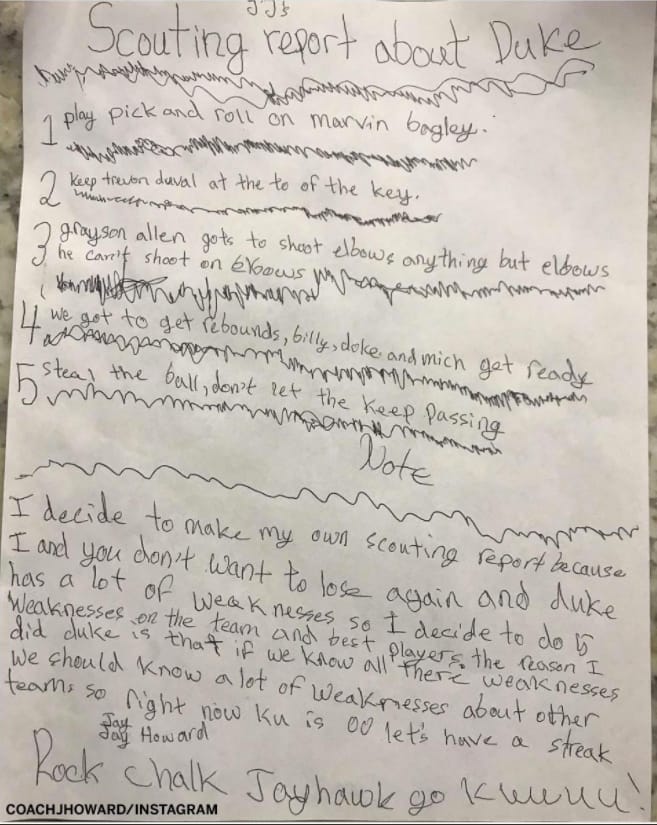 JJ's
Scouting report about Duke
1 play pick and roll on marvin bagley.
2 keep trevon duval at the to of the key.
3 grayson allen gots to shoot elbows anything but elbows
he can't shoot on elbows
4 we got to get rebounds, billy, doke and mich get ready
5 steal the ball, don't let the keep passing
Note
I decide to make my own scouting report because
I and you don't want to lose again and duke
has a lot of weaknesses so I decide to do 5
weaknesses on the team and best players. the reason I
did duke is that if we know all there weaknesses
we should know a lot of weaknesses about other
teams so right now ku is 00 let's have a streak
Jay
Jay Howard
Rock chalk Jayhawk go kuuuu!
COACHJHOWARD/INSTAGRAM